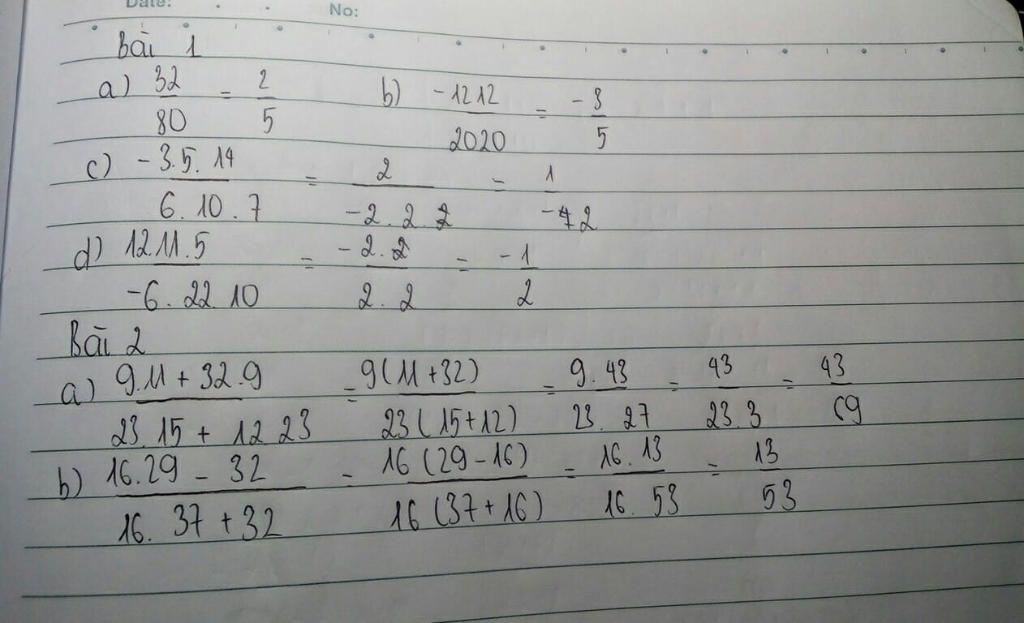 Date: No:
Bài 1
a) 32/80 = 2/5 b) -1212/2020 = -3/5
c) -3.5.14/6.10.7 = 2/-2.2.2 = 1/-2
d) 12.11.5/-6.22.10 = -2.2/2.2 = -1/2
Bài 2
a) 9.11 + 32.9/23.15 + 12.23 = 9(11+32)/23(15+12) = 9.43/23.27 = 43/23.3 = 43/69
b) 16.29 - 32/16.37 + 32 = 16(29-16)/16(37+16) = 16.13/16.53 = 13/53